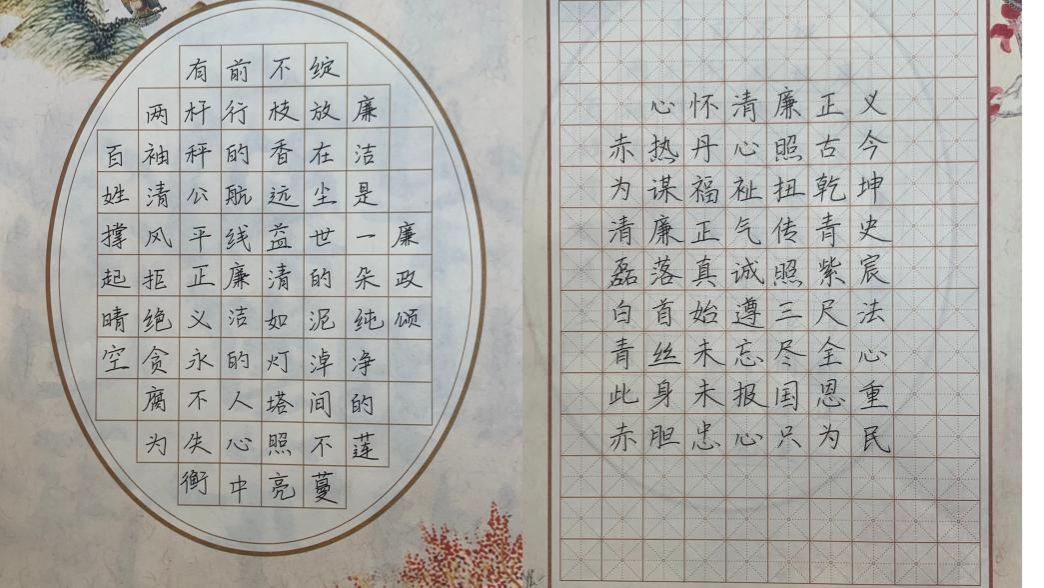 廉政颂
廉洁是一朵纯净的莲
绽放在尘世的泥淖间不蔓
不枝香远益清如灯塔照亮
前行的航线廉洁的人心中
有杆秤公平正义永不失衡
两袖清风拒绝贪腐为
百姓撑起晴空
心怀清廉正义
赤热丹心照古今
为谋福祉扭乾坤
清廉正气传青史
磊落真诚照紫宸
白首始遵三尺法
青丝未忘尽全心
此身未报国恩重
赤胆忠心只为民